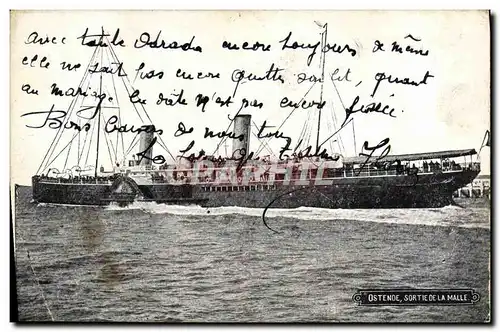 avec tante Odrada encore toujours de même
elle ne sait pas encore quitter son lit, quant
au mariage la date n'est pas encore fixée.
Bons baisers de nous tous
OSTENDE, SORTIE DE LA MALLE.